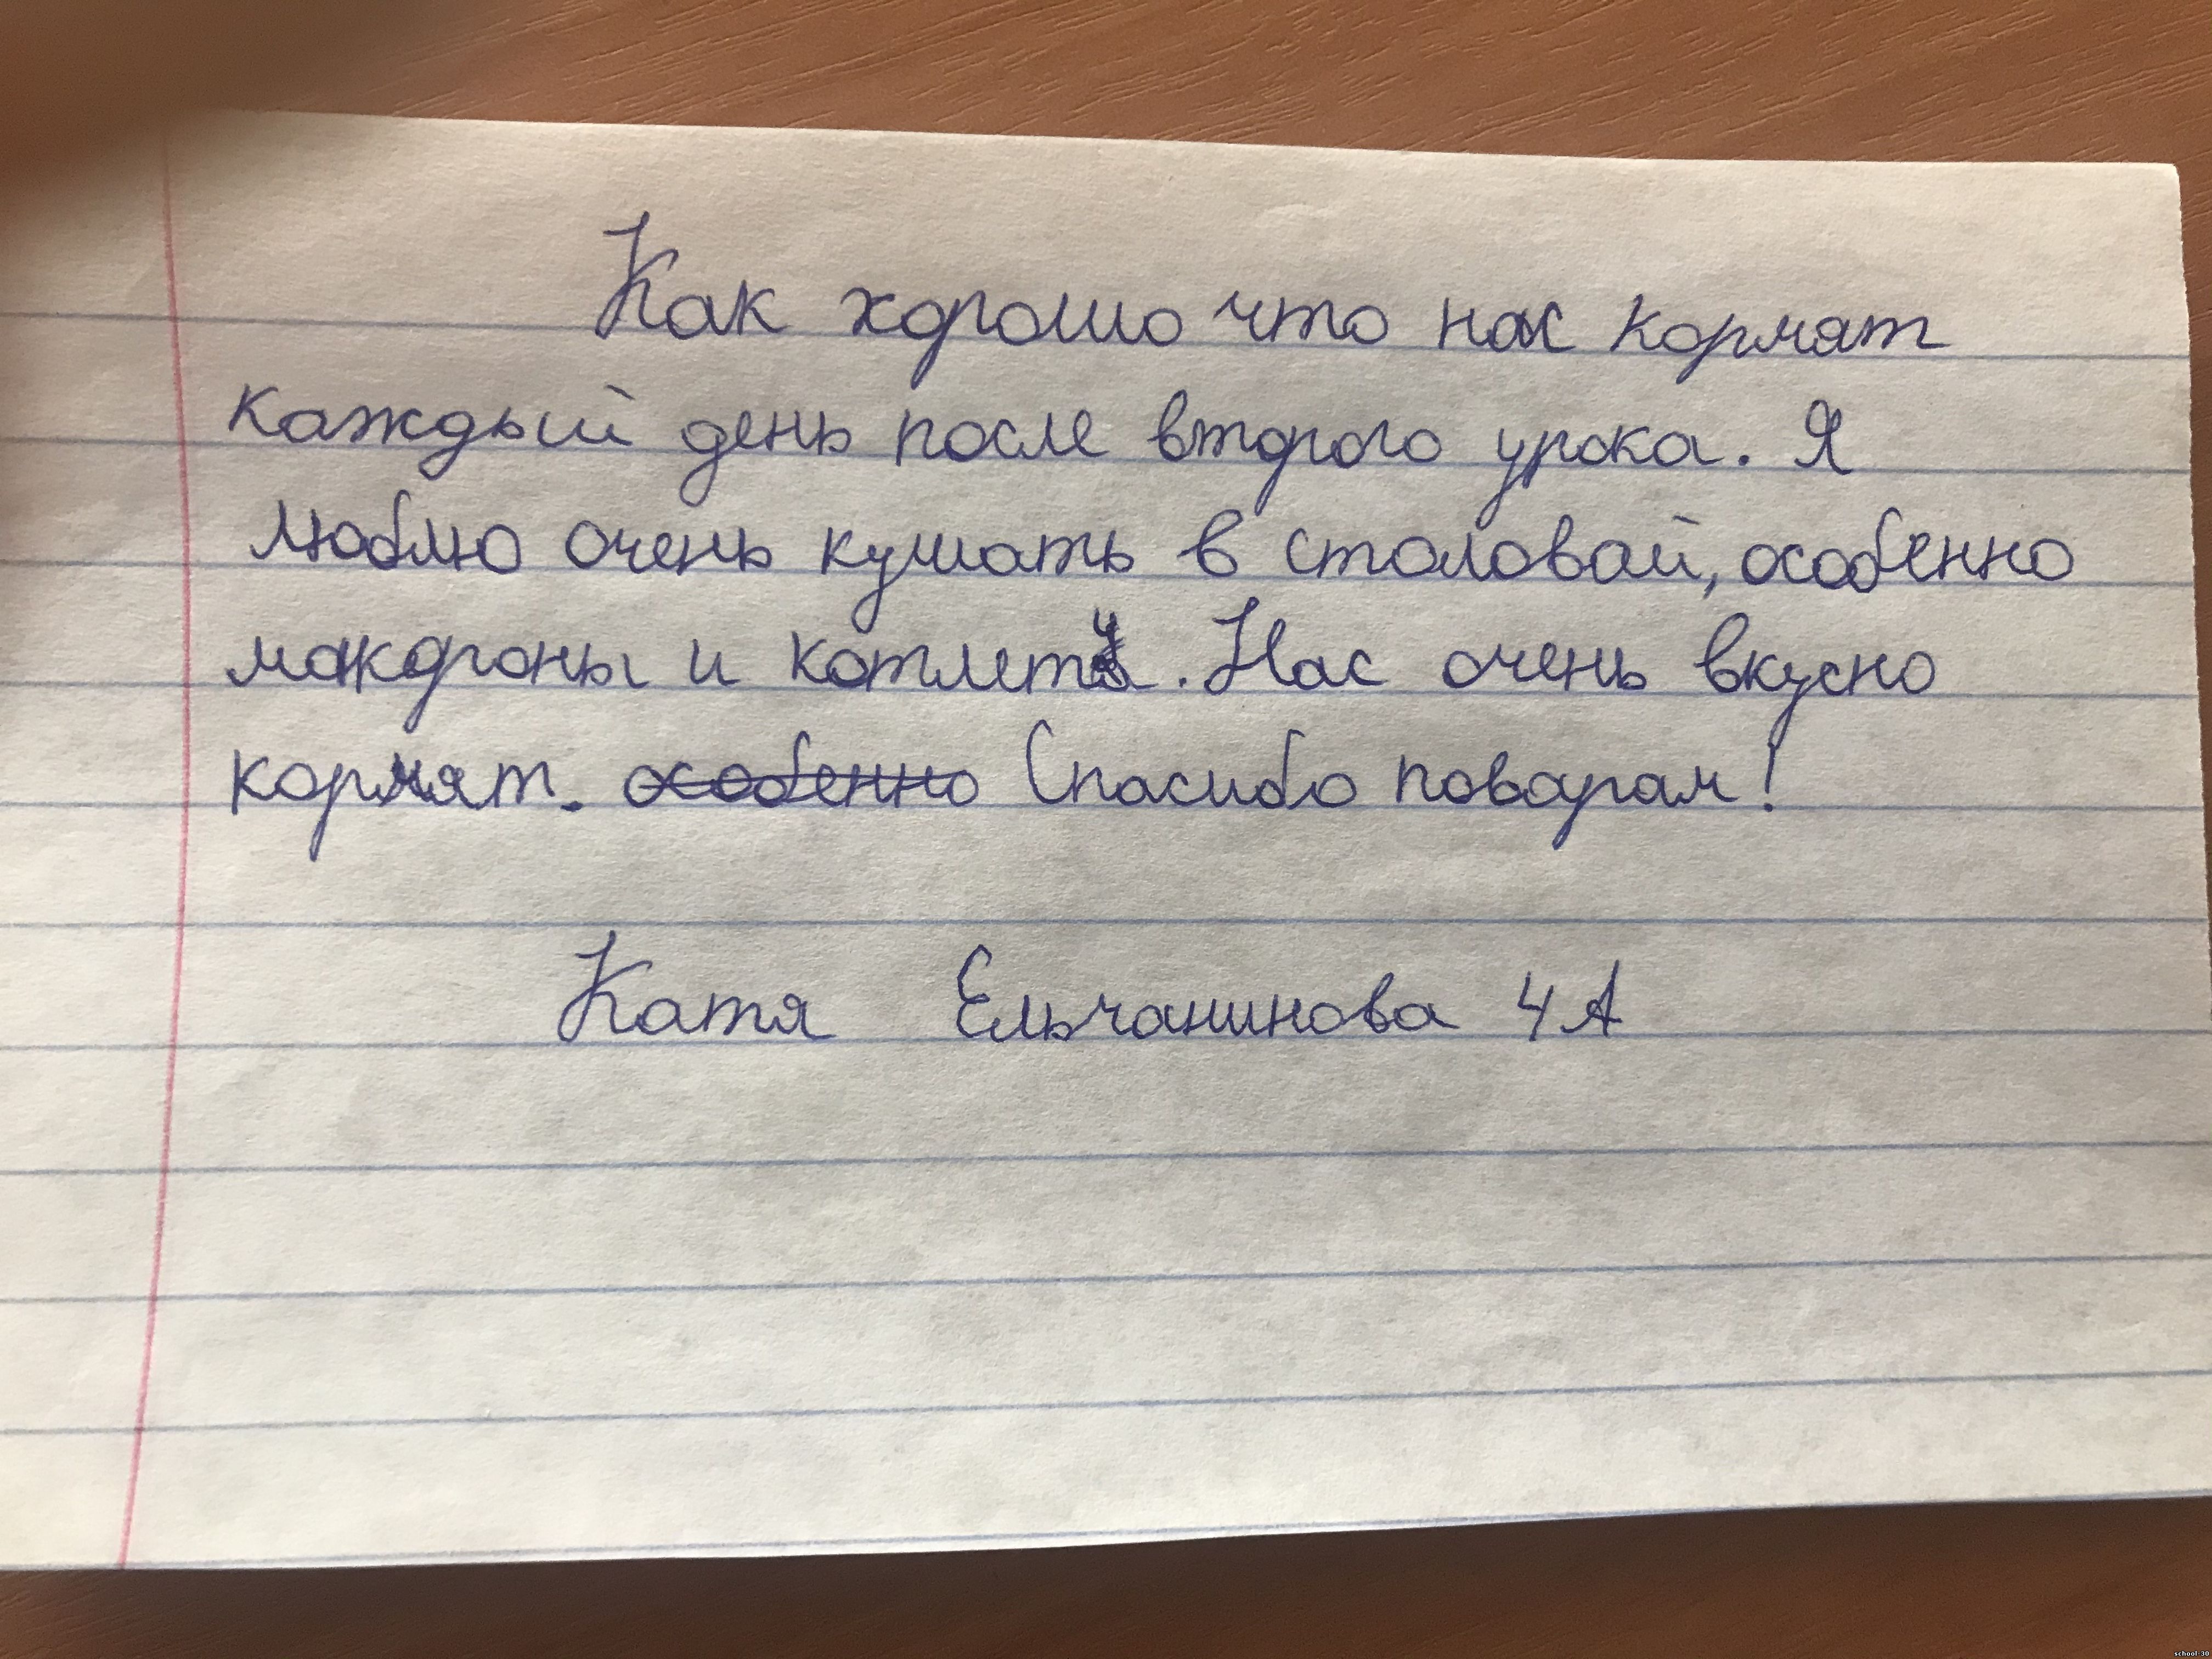 Как хорошо что нас кормят
каждый день после второго урока. Я
люблю очень кушать в столовай, особенно
макароны и котлету. Нас очень вкусно
кормят. особенно Спасибо поварам!
Катя Ельчанинова 4 А
school-30